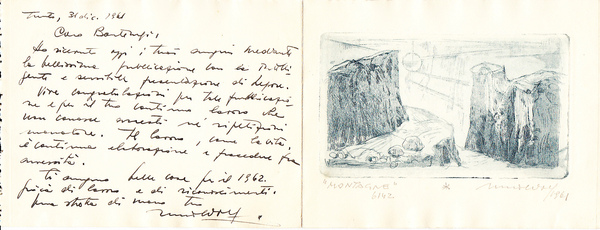 Trento, 31 dic. 1961
Caro
Ho ricevuto oggi i tuoi auguri mediante
la bellissima pubblicazione con la
gente e sensibile presentazione di
Vive congratulazioni per tale pubblicazio
ne e per il tuo continuo lavoro che
non conosce arresti né ripetizioni
Il lavoro, come la vita,
è continua elaborazione e procedere fra
avversità.
Ti auguro belle cose per il 1962.
di lavoro e di riconoscimenti.
una stretta di mano tuo
"MONTAGNE"
1961